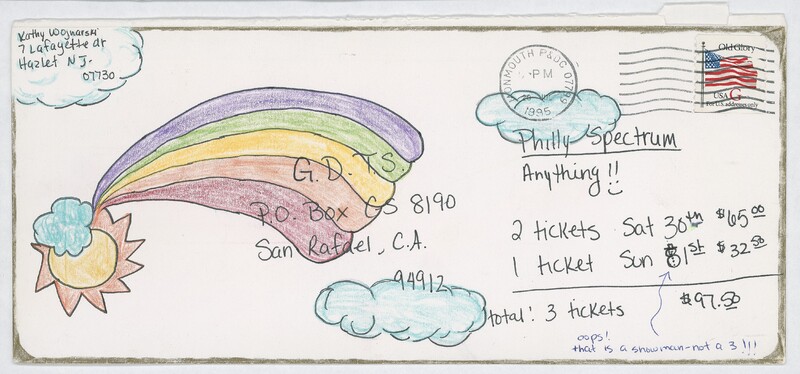 Kathy Wojnarski
7 Lafayette dr
Hazlet N.J.
07730
MONMOUTH P&DC 07799
PM
1995
Old Glory
USA G
For U.S. addresses only
G.D.T.S.
P.O. Box CS 8190
San Rafael, C.A.
94912
Philly Spectrum
Anything!!
2 tickets Sat 30th $65.00
1 ticket Sun 81st $32.50
total: 3 tickets $97.50
oops!
that is a snowman-not a 3!!!